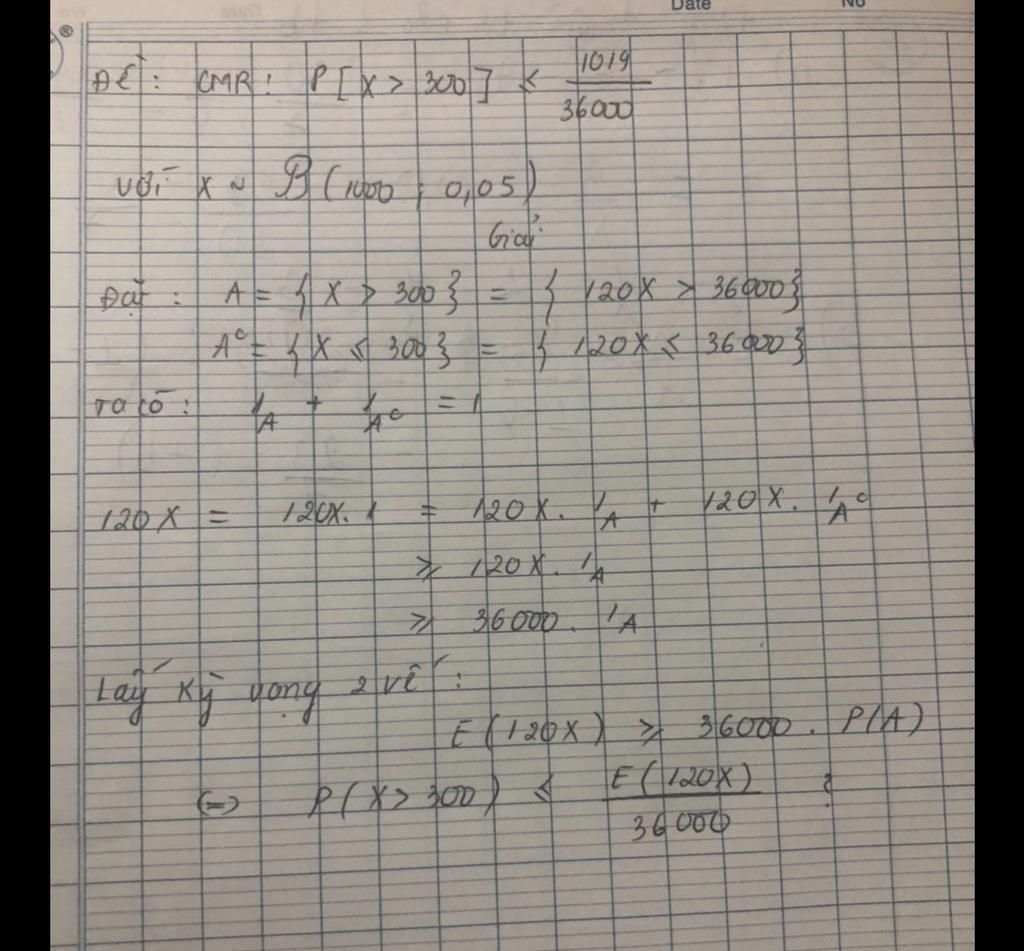 Date No
®
Đề: CMR: P[X > 300] ≤ 1019/36000
với X ~ B(1000; 0,05)
Giải
Đặt: A = {X > 300} = {120X > 36000}
Aᶜ = {X ≤ 300} = {120X ≤ 36000}
Ta có: 1_A + 1_Aᶜ = 1
120X = 120X.1 = 120X. 1_A + 120X. 1_Aᶜ
≥ 120X. 1_A
≥ 36000. 1_A
Lấy kỳ vọng 2 vế:
E(120X) ≥ 36000. P(A)
(=) P(X > 300) ≤ E(120X)/36000 ?